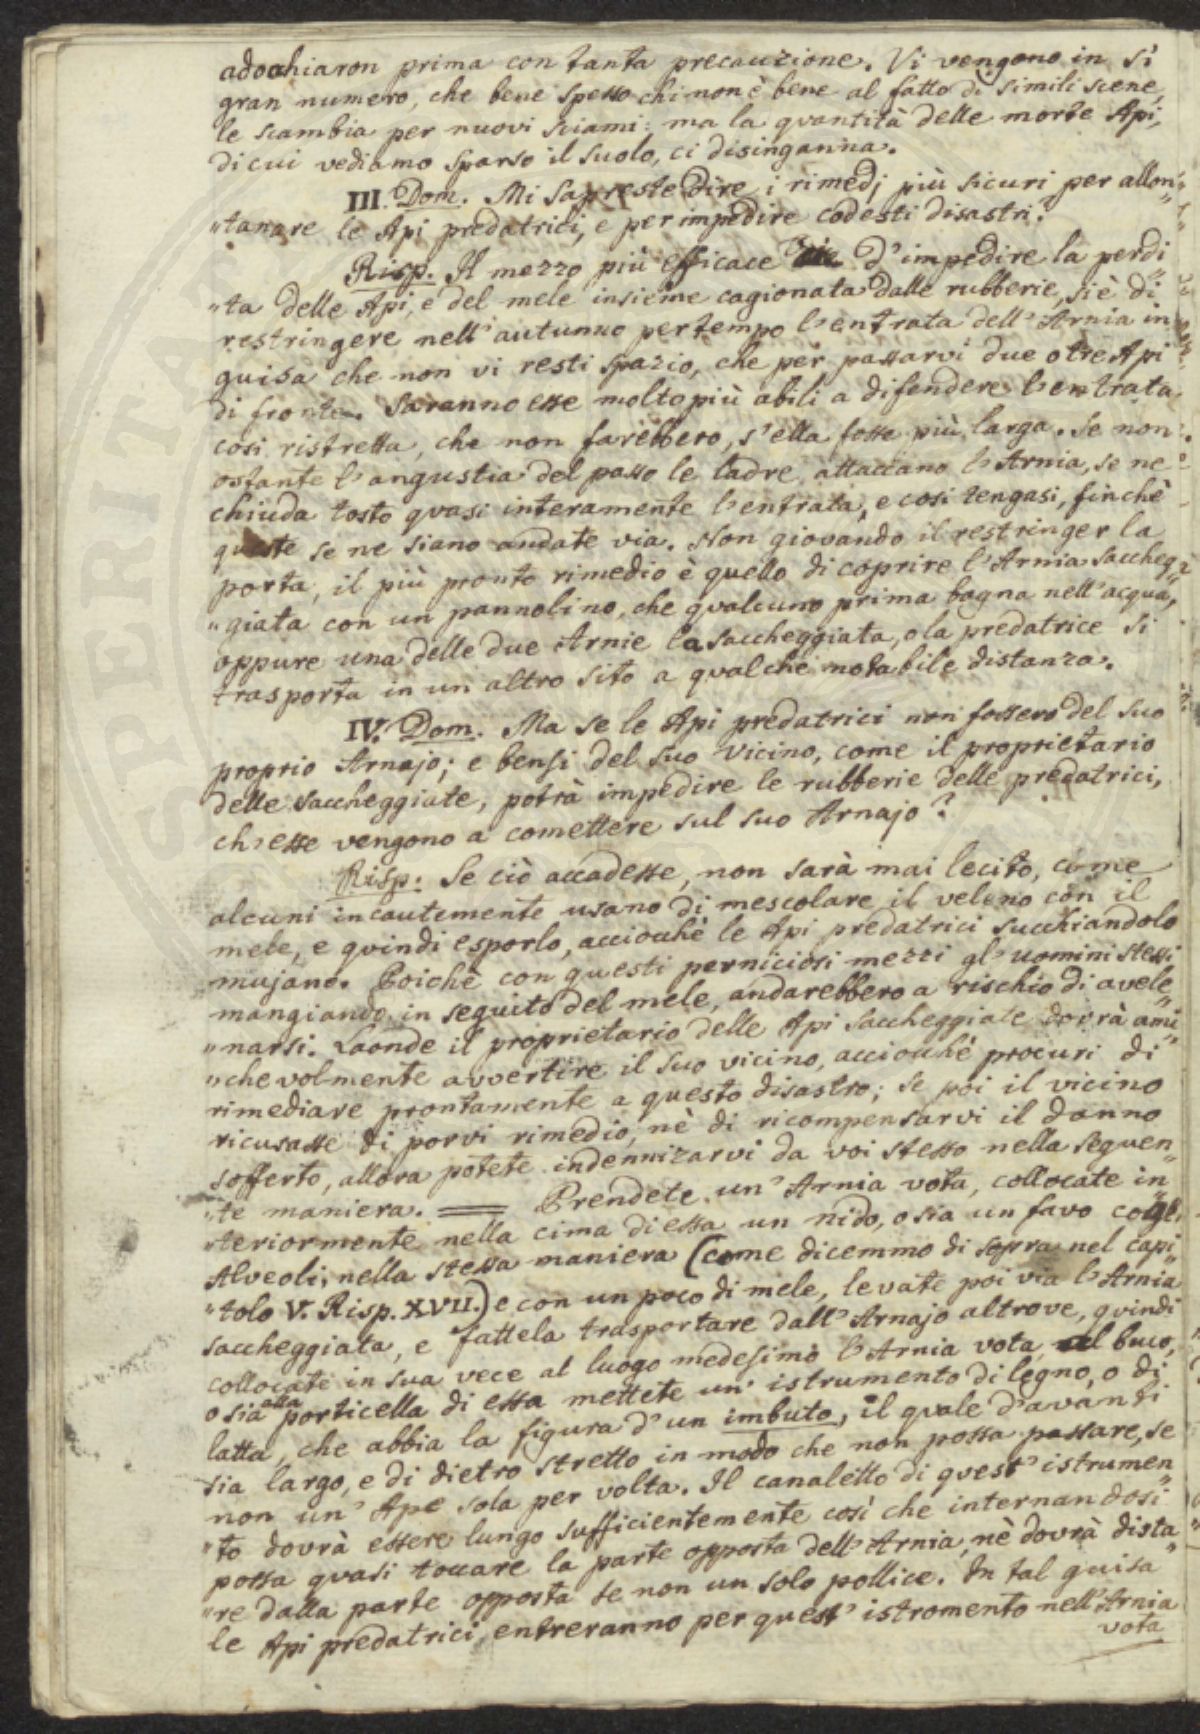 adocchiaron prima con tanta precauzione. Vi vengono in sì
gran numero, che bene spesso chi non è bene al fatto di simili scene,
le scambia per nuovi sciami: ma la quantità delle morte Api,
di cui vediamo sparso il suolo, ci disinganna.
III. Dom. Mi sapreste dire i rimedj più sicuri per allon„
„tanare le Api predatrici, e per impedire codesti disastri?
Risp. Il mezzo più efficace d'impedire la perdi„
„ta delle Api, e del mele insieme cagionata dalle rubberie, si è di
restringere nell'autunno per tempo l'entrata dell'Arnia in
guisa che non vi resti spazio, che per passarvi due o tre Api
di fronte. Saranno esse molto più abili a difendere l'entrata
così ristretta, che non farebbero, s'ella fosse più larga. Se non
ostante l'angustia del passo le ladre attaccano l'Arnia, se ne
chiuda tosto quasi interamente l'entrata, e così tengasi, finchè
queste se ne siano andate via. Non giovando il restringer la
porta, il più pronto rimedio è quello di coprire l'Arnia saccheg„
„giata con un pannolino, che qualcuno prima bagna nell'acqua,
oppure una delle due Arnie la saccheggiata, o la predatrice si
trasporta in un altro sito a qualche notabile distanza.
IV. Dom. Ma se le Api predatrici non fossero del suo
proprio Arnajo; e bensì del suo vicino, come il proprietario
delle saccheggiate, potrà impedire le rubberie delle predatrici,
ch'esse vengono a comettere sul suo Arnajo?
Risp: Se ciò accadesse, non sarà mai lecito, come
alcuni incautemente usano di mescolare il veleno con il
mele, e quindi esporlo, acciocchè le Api predatrici succhiandolo
mujano. Poichè con questi perniciosi mezzi gl'uomini stessi
mangiando in seguito del mele, andarebbero a rischio di avele„
„narsi. Laonde il proprietario delle Api saccheggiate dovrà ami„
„chevolmente avvertire il suo vicino, acciocchè procuri di
rimediare prontamente a questo disastro; se poi il vicino
ricusasse di porvi rimedio, nè di ricompensarvi il danno
sofferto, allora potete indennizarvi da voi stesso nella seguen„
„te maniera. == Prendete un'Arnia vota, collocate in„
„teriormente nella cima di essa un nido, o sia un favo cogl'
Alveoli, nella stessa maniera (come dicemmo di sopra nel capi„
„tolo V. Risp. XVII.) e con un poco di mele, levate poi via l'Arnia
saccheggiata, e fattela trasportare dall'Arnajo altrove, quindi
collocate in sua vece al luogo medesimo l'Arnia vota, al buco,
o sia alla porticella di essa mettete un istrumento di legno, o di
latta, che abbia la figura d'un imbuto, il quale d'avanti
sia largo, e di dietro stretto in modo che non possa passare, se
non un'Ape sola per volta. Il canaletto di quest'istrumen„
„to dovrà essere lungo sufficientemente così che internandosi
possa quasi toccare la parte opposta dell'Arnia, nè dovrà dista„
„re dalla parte opposta se non un solo pollice. In tal guisa
le Api predatrici entreranno per quest'istromento nell'Arnia
vota